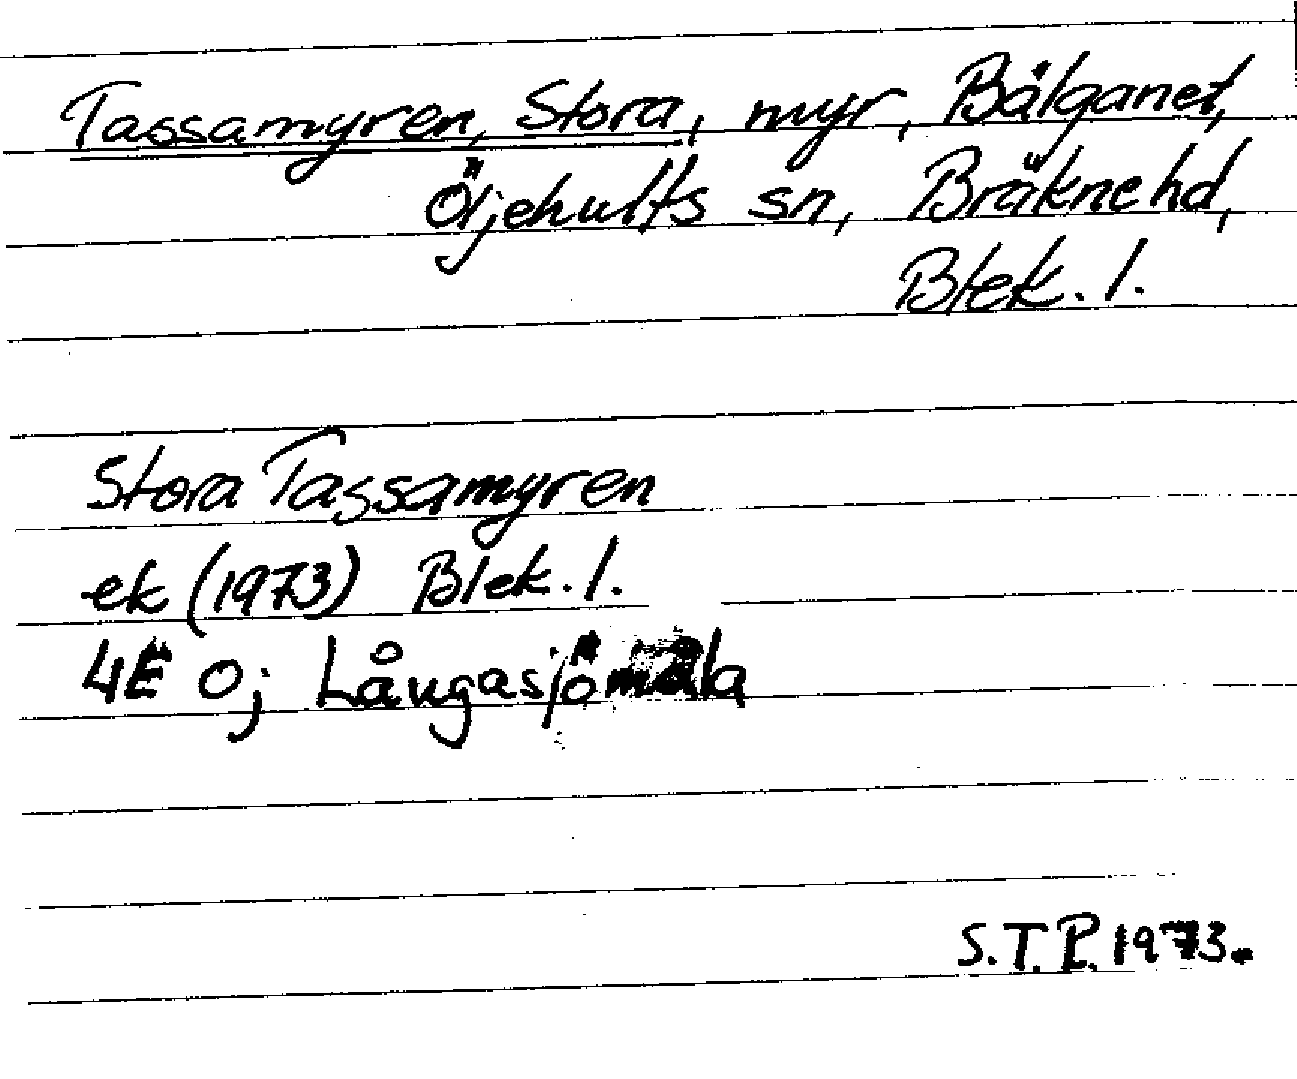 Tassamyren, Stora, myr, Bälganet,
Öljehults sn, Bräkne hd,
Blek. l.
Stora Tassamyren
ek (1973) Blek. l.
4E O; Långasjömåla
S.T.P. 1973.